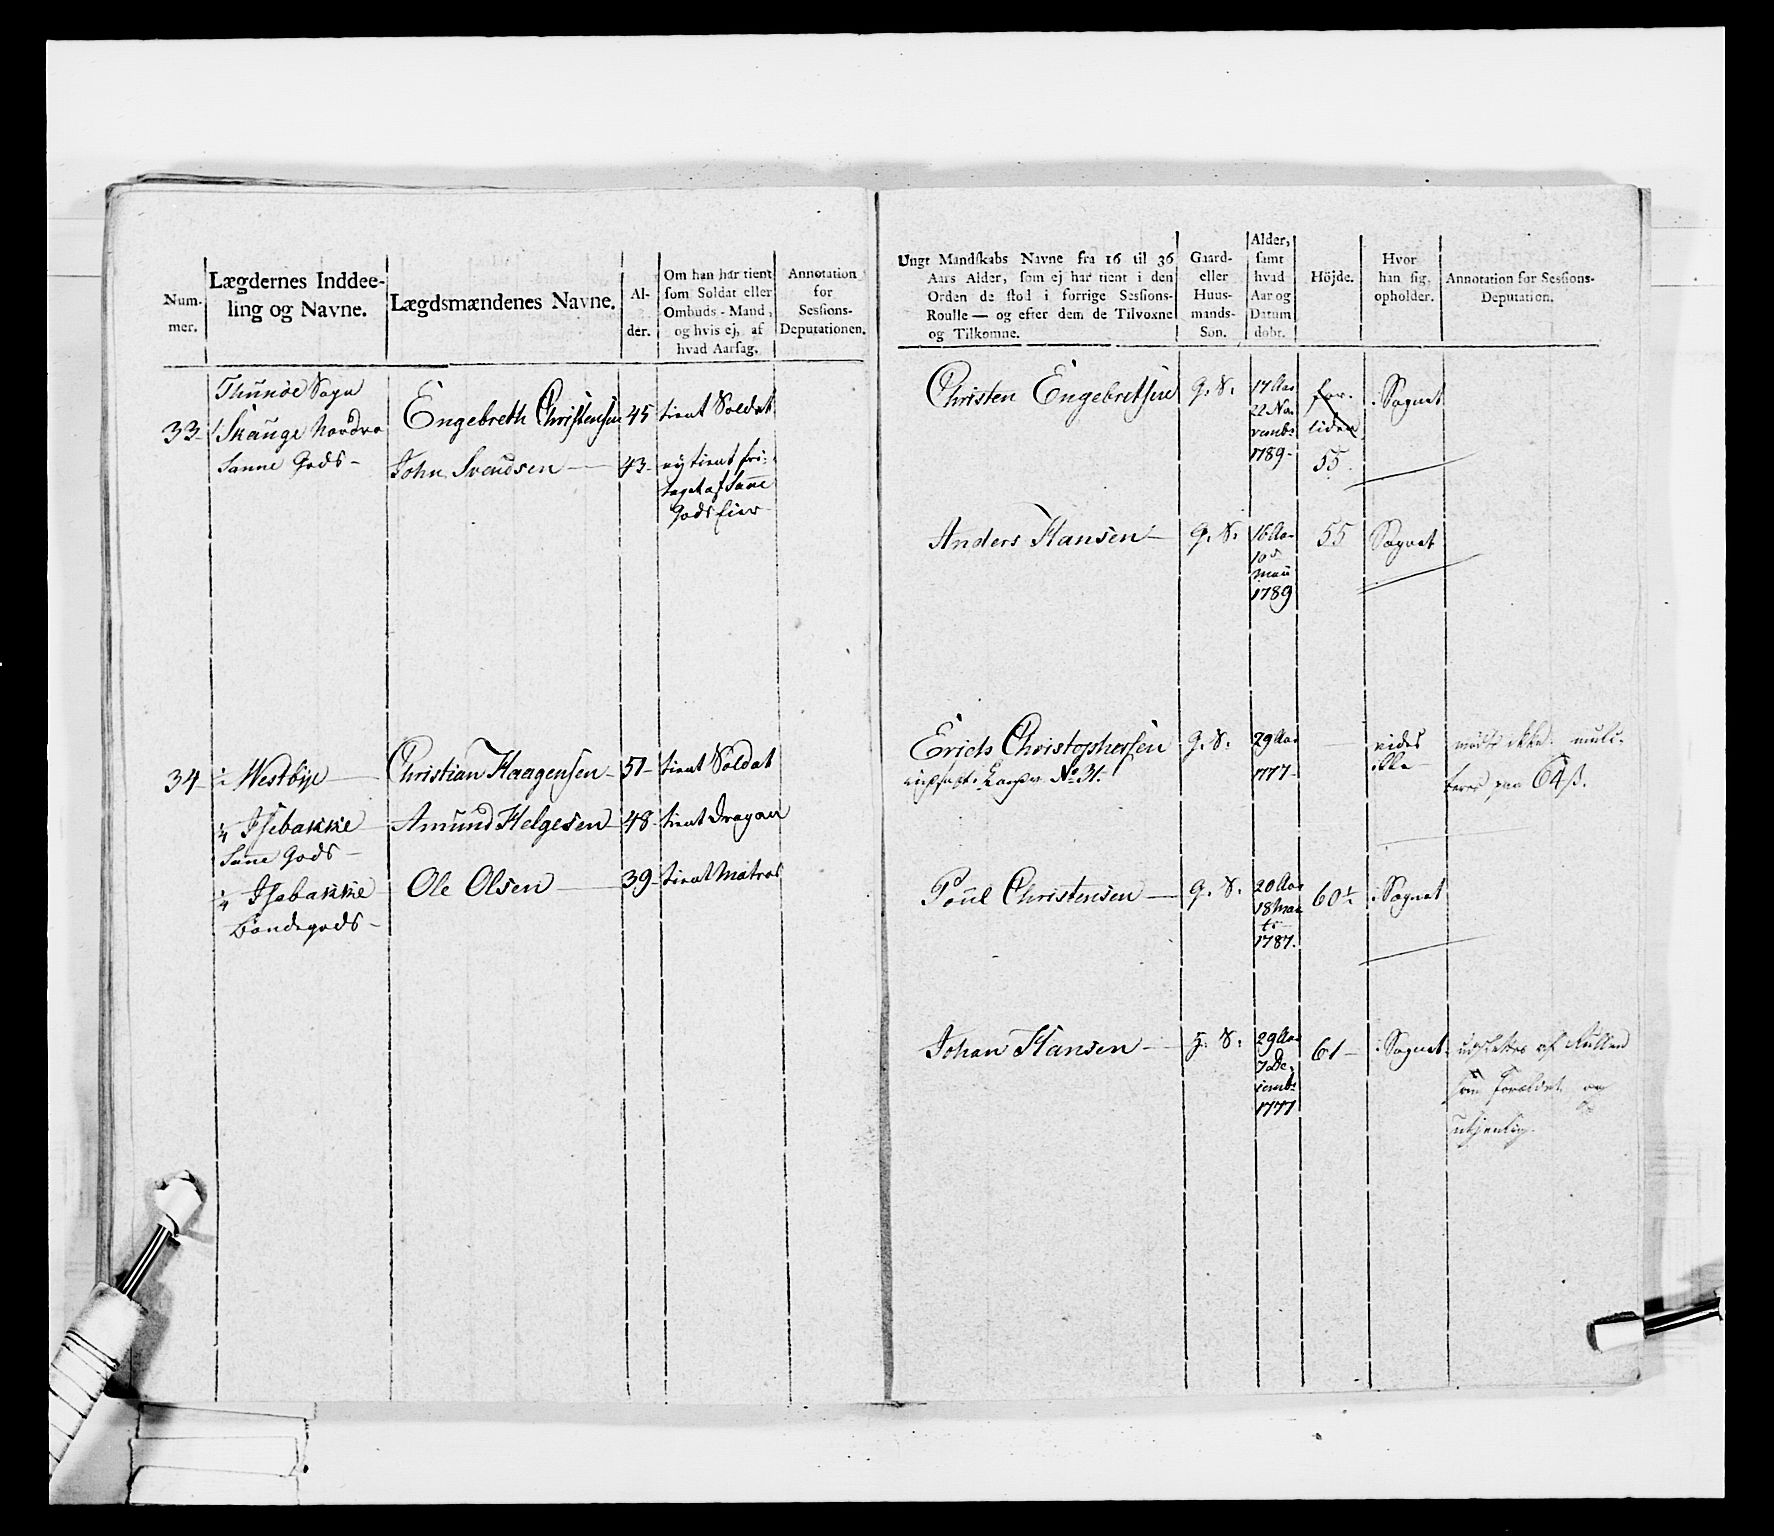 Num-
mer.
Lægdernes Inddee-
ling og Navne.
Lægdsmændenes Navne.
Al-
der.
Om han har tient
som Soldat eller
Ombuds-Mand,
og hvis ej, af
hvad Aarsag.
Annotation
for
Sessions-
Deputationen.
33
Thunøe Sogn
1 Skauge Nordre
Sanne Gods
Engebreth Christensen
45
tient Soldat
John Svendsen
43
ej tient fri-
taget af Sanne
Gods Eier
34
½ Westbye
Christian Haagensen
51
tient Soldat
¼ Isebakke
Sanne Gods
Amund Helgesen
48
tient Dragon
¼ Isebakke
Bondegods
Ole Olsen
39
tient Matros
Ungt Mandskabs Navne fra 16 til 36
Aars Alder, som ej har tient i den
Orden de stod i forrige Sessions-
Roulle — og efter dem de Tilvoxne
og Tilkomne.
Gaard-
eller
Huus-
mands-
Søn.
Alder,
samt
hvad
Aar og
Datum
døbt.
Höjde.
Hvor
han sig
opholder.
Annotation for Sessions-
Deputation.
Christen Engebretsen
G. S.
17 Aar
22 No-
vembr
1789
for-
liden
55
i Sognet
Anders Hansen
G. S.
16 Aar
10de
1789
55
Sognet
Erich Christophersen
G. S.
29 Aar
1777
vides
ikke
mødte ikke. mulc-
teres paa 64 ß.
No 31.
Poul Christensen
G. S.
20 Aar
18 Mar-
ts
1787.
60½
i Sognet
Johan Hansen
H. S.
29 Aar
7 De-
cembr
1777
61
i Sognet
udslettes af Rullen
som forældet og
utjenlig.